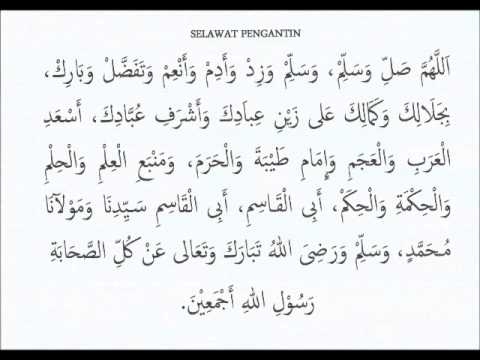 SELAWAT PENGANTIN
اَللَّهُمَّ صَلِّ وَسَلِّمْ، وَسَلِّمْ وَزِدْ وَأَدِمْ وَأَنْعِمْ وَتَفَضَّلْ وَبَارِكْ،
بِجَلَالِكَ وَكَمَالِكَ عَلى زَيْنِ عِبَادِكَ وَأَشْرَفِ عُبَّادِكَ، أَسْعَدِ
الْعَرَبِ وَالْعَجَمِ وَإِمَامِ طَيْبَةَ وَالْحَرَمِ، وَمَنْبَعِ الْعِلْمِ وَالْحِلْمِ
وَالْحِكْمَةِ وَالْحِكَمْ، أَبِى الْقَاسِمِ، أَبِى الْقَاسِمِ سَيِّدِنَا وَمَوْلَآنَا
مُحَمَّدٍ، وَسَلِّمْ وَرَضِىَ اللهُ تَبَارَكَ وَتَعَالى عَنْ كُلِّ الصَّحَابَةِ
رَسُوْلِ اللهِ أَجْمَعِيْنَ.